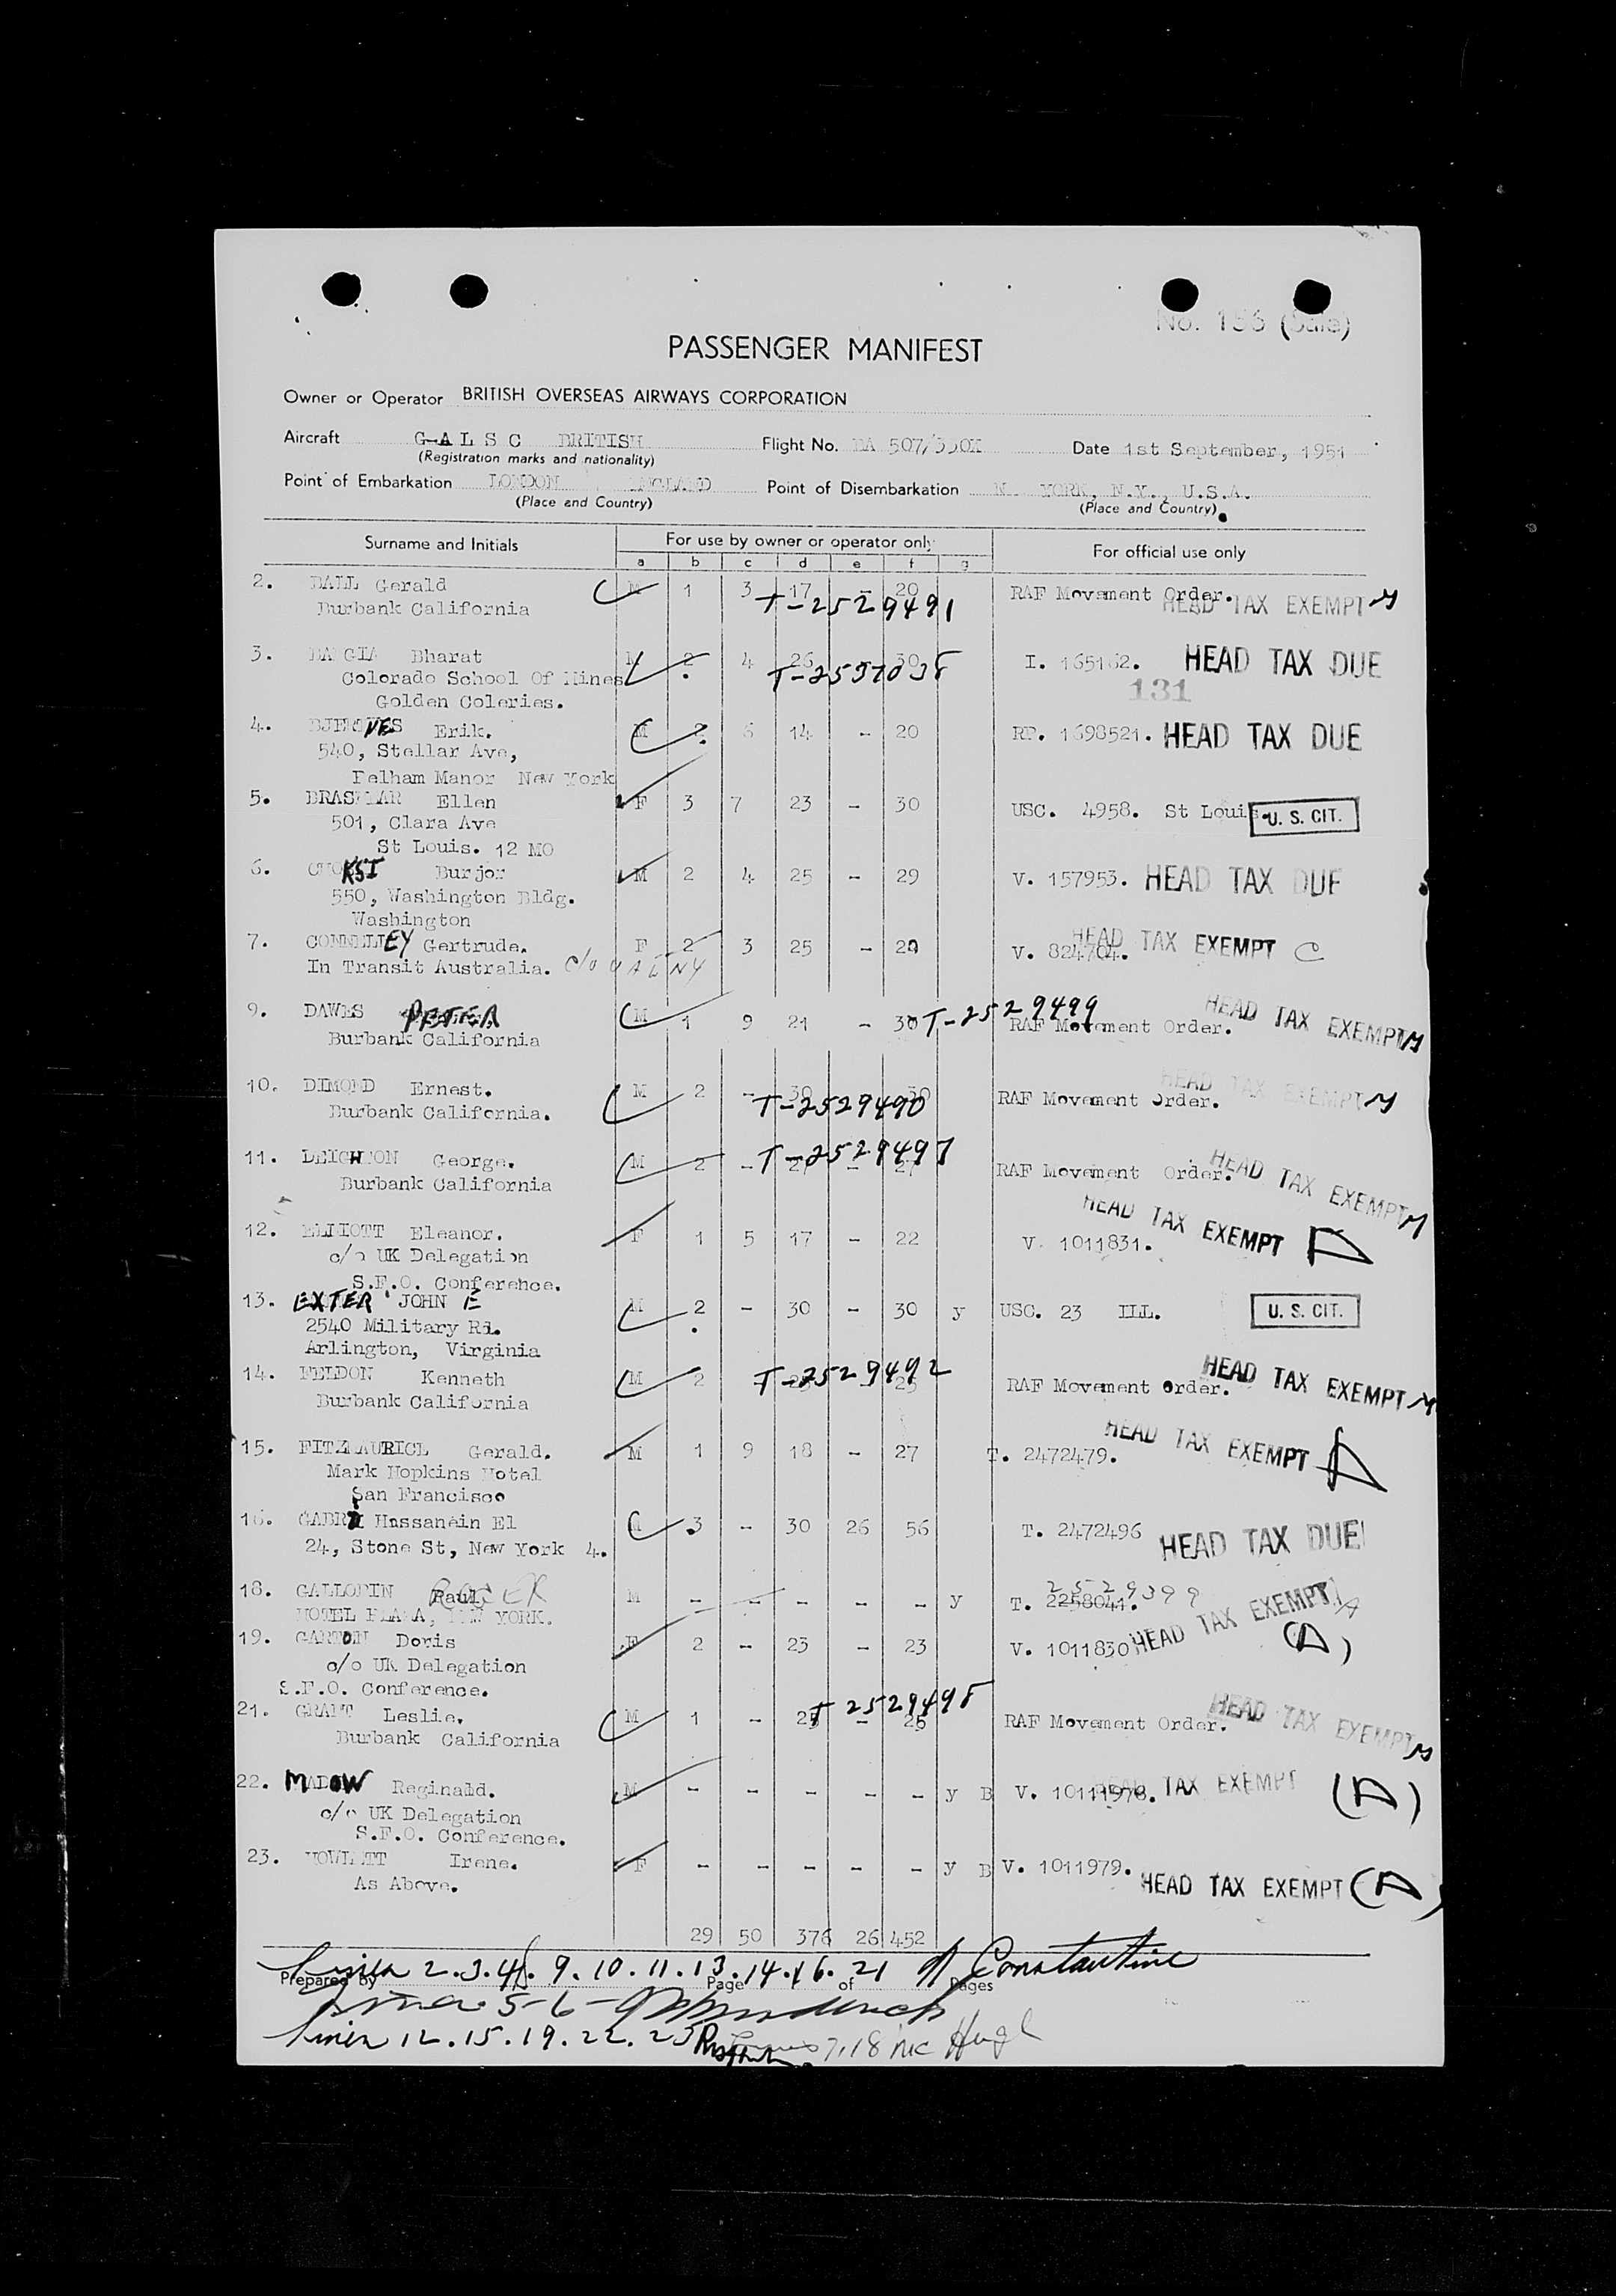 No. 156 (Sale)
PASSENGER MANIFEST
Owner or Operator BRITISH OVERSEAS AIRWAYS CORPORATION
Aircraft G-A L S C BRITISH Flight No. BA 507/ Date 1st September, 1951
(Registration marks and nationality)
Point of Embarkation LONDON ENGLAND Point of Disembarkation N. YORK, N.Y., U.S.A.
(Place and Country) (Place and Country)
Surname and Initials For use by owner or operator only For official use only
a b c d e f g
2. BALL Gerald M 1 3 17 - 20 RAF Movement Order. HEAD TAX EXEMPT M
Burbank California T-2529491
3. Bharat 2 4 26 30 I. 165162. HEAD TAX DUE
Colorado School Of Mines T-2537038 131
Golden Coleries.
4. Erik. M 2 6 14 - 20 RP. 1698521. HEAD TAX DUE
540, Stellar Ave,
Pelham Manor New York
5. Ellen F 3 7 23 - 30 USC. 4958. St Louis. U. S. CIT.
501, Clara Ave
St Louis. 12 MO
6. CHOKSI Burjor M 2 4 25 - 29 V. 157953. HEAD TAX DUE
550, Washington Bldg.
Washington
7. CONNELLEY Gertrude. F 2 3 25 - 29 V. 824704. HEAD TAX EXEMPT C
In Transit Australia. c/o UAL NY
9. DAWES PETER M 1 9 21 - 30 T-2529499 RAF Movement Order. HEAD TAX EXEMPT M
Burbank California
10. DIMOND Ernest. M 2 - 30 30 RAF Movement Order. HEAD TAX EXEMPT M
Burbank California. T-2529490
11. DEIGHTON George. M 2 - 27 - 27 T-2529497 RAF Movement Order. HEAD TAX EXEMPT M
Burbank California
12. ELLIOTT Eleanor. F 1 5 17 - 22 V. 1011831. HEAD TAX EXEMPT D
c/o UK Delegation
S.F.O. Conference.
13. EXTER JOHN E M 2 - 30 - 30 y USC. 23 ILL. U. S. CIT.
2540 Military Rd.
Arlington, Virginia
14. FELDON Kenneth M 2 T-2529492 RAF Movement Order. HEAD TAX EXEMPT M
Burbank California
15. FITZMAURICE Gerald. M 1 9 18 - 27 T. 2472479. HEAD TAX EXEMPT D
Mark Hopkins Hotel
San Francisco
16. Hassanein El M 3 - 30 26 56 T. 2472496 HEAD TAX DUE
24, Stone St, New York 4.
18. GALLOPIN Paul ROGER M - - - - - y T. 2258041. 2529399 HEAD TAX EXEMPT A
HOTEL PLAZA, NEW YORK.
19. GARTON Doris F 2 - 23 - 23 V. 1011830 (D)
c/o UK Delegation
S.F.O. Conference.
21. GRANT Leslie. M 1 - 25 - 25 T 2529498 RAF Movement Order. HEAD TAX EXEMPT M
Burbank California
22. Reginald. M - - - - - y B V. 1011978. HEAD TAX EXEMPT (D)
c/o UK Delegation
S.F.O. Conference.
23. HOWLETT Irene. F - - - - - y B V. 1011979. HEAD TAX EXEMPT (D)
As Above.
29 50 376 26 452
Prepared by Page of Pages
Lines 2.3.4. 9.10.11.13.14.16.21 Constantine
Lines 5-6-
Lines 12.15.19.22.23 Lines 7,18 Mc Hugh